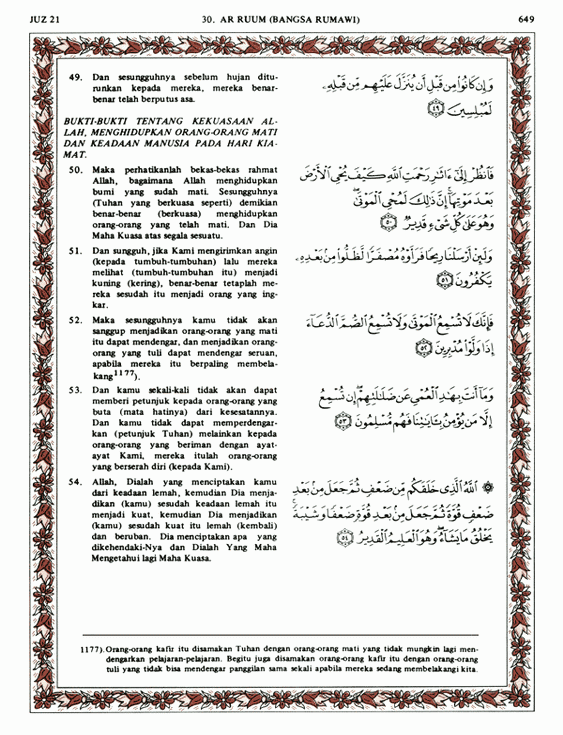 JUZ 21 30. AR RUUM (BANGSA RUMAWI) 649
49. Dan sesungguhnya sebelum hujan ditu-
runkan kepada mereka, mereka benar-
benar telah berputus asa.
وَإِن كَانُوا۟ مِن قَبْلِ أَن يُنَزَّلَ عَلَيْهِم مِّن قَبْلِهِۦ
لَمُبْلِسِينَ ٤٩
BUKTI-BUKTI TENTANG KEKUASAAN AL-
LAH, MENGHIDUPKAN ORANG-ORANG MATI
DAN KEADAAN MANUSIA PADA HARI KIA-
MAT.
50. Maka perhatikanlah bekas-bekas rahmat
Allah, bagaimana Allah menghidupkan
bumi yang sudah mati. Sesungguhnya
(Tuhan yang berkuasa seperti) demikian
benar-benar (berkuasa) menghidupkan
orang-orang yang telah mati. Dan Dia
Maha Kuasa atas segala sesuatu.
فَٱنظُرْ إِلَىٰٓ ءَاثَٰرِ رَحْمَتِ ٱللَّهِ كَيْفَ يُحْىِ ٱلْأَرْضَ
بَعْدَ مَوْتِهَآ إِنَّ ذَٰلِكَ لَمُحْىِ ٱلْمَوْتَىٰ
وَهُوَ عَلَىٰ كُلِّ شَىْءٍ قَدِيرٌ ٥٠
51. Dan sungguh, jika Kami mengirimkan angin
(kepada tumbuh-tumbuhan) lalu mereka
melihat (tumbuh-tumbuhan itu) menjadi
kuning (kering), benar-benar tetaplah me-
reka sesudah itu menjadi orang yang ing-
kar.
وَلَئِنْ أَرْسَلْنَا رِيحًا فَرَأَوْهُ مُصْفَرًّا لَّظَلُّوا۟ مِنۢ بَعْدِهِۦ
يَكْفُرُونَ ٥١
52. Maka sesungguhnya kamu tidak akan
sanggup menjadikan orang-orang yang mati
itu dapat mendengar, dan menjadikan orang-
orang yang tuli dapat mendengar seruan,
apabila mereka itu berpaling membela-
kang1177).
فَإِنَّكَ لَا تُسْمِعُ ٱلْمَوْتَىٰ وَلَا تُسْمِعُ ٱلصُّمَّ ٱلدُّعَآءَ
إِذَا وَلَّوْا۟ مُدْبِرِينَ ٥٢
53. Dan kamu sekali-kali tidak akan dapat
memberi petunjuk kepada orang-orang yang
buta (mata hatinya) dari kesesatannya.
Dan kamu tidak dapat memperdengar-
kan (petunjuk Tuhan) melainkan kepada
orang-orang yang beriman dengan ayat-
ayat Kami, mereka itulah orang-orang
yang berserah diri (kepada Kami).
وَمَآ أَنتَ بِهَٰدِ ٱلْعُمْىِ عَن ضَلَٰلَتِهِمْ إِن تُسْمِعُ
إِلَّا مَن يُؤْمِنُ بِـَٔايَٰتِنَا فَهُم مُّسْلِمُونَ ٥٣
54. Allah, Dialah yang menciptakan kamu
dari keadaan lemah, kemudian Dia menja-
dikan (kamu) sesudah keadaan lemah itu
menjadi kuat, kemudian Dia menjadikan
(kamu) sesudah kuat itu lemah (kembali)
dan beruban. Dia menciptakan apa yang
dikehendaki-Nya dan Dialah Yang Maha
Mengetahui lagi Maha Kuasa.
۞ ٱللَّهُ ٱلَّذِى خَلَقَكُم مِّن ضَعْفٍ ثُمَّ جَعَلَ مِنۢ بَعْدِ
ضَعْفٍ قُوَّةً ثُمَّ جَعَلَ مِنۢ بَعْدِ قُوَّةٍ ضَعْفًا وَشَيْبَةً
يَخْلُقُ مَا يَشَآءُ وَهُوَ ٱلْعَلِيمُ ٱلْقَدِيرُ ٥٤
1177). Orang-orang kafir itu disamakan Tuhan dengan orang-orang mati yang tidak mungkin lagi men-
dengarkan pelajaran-pelajaran. Begitu juga disamakan orang-orang kafir itu dengan orang-orang
tuli yang tidak bisa mendengar panggilan sama sekali apabila mereka sedang membelakangi kita.